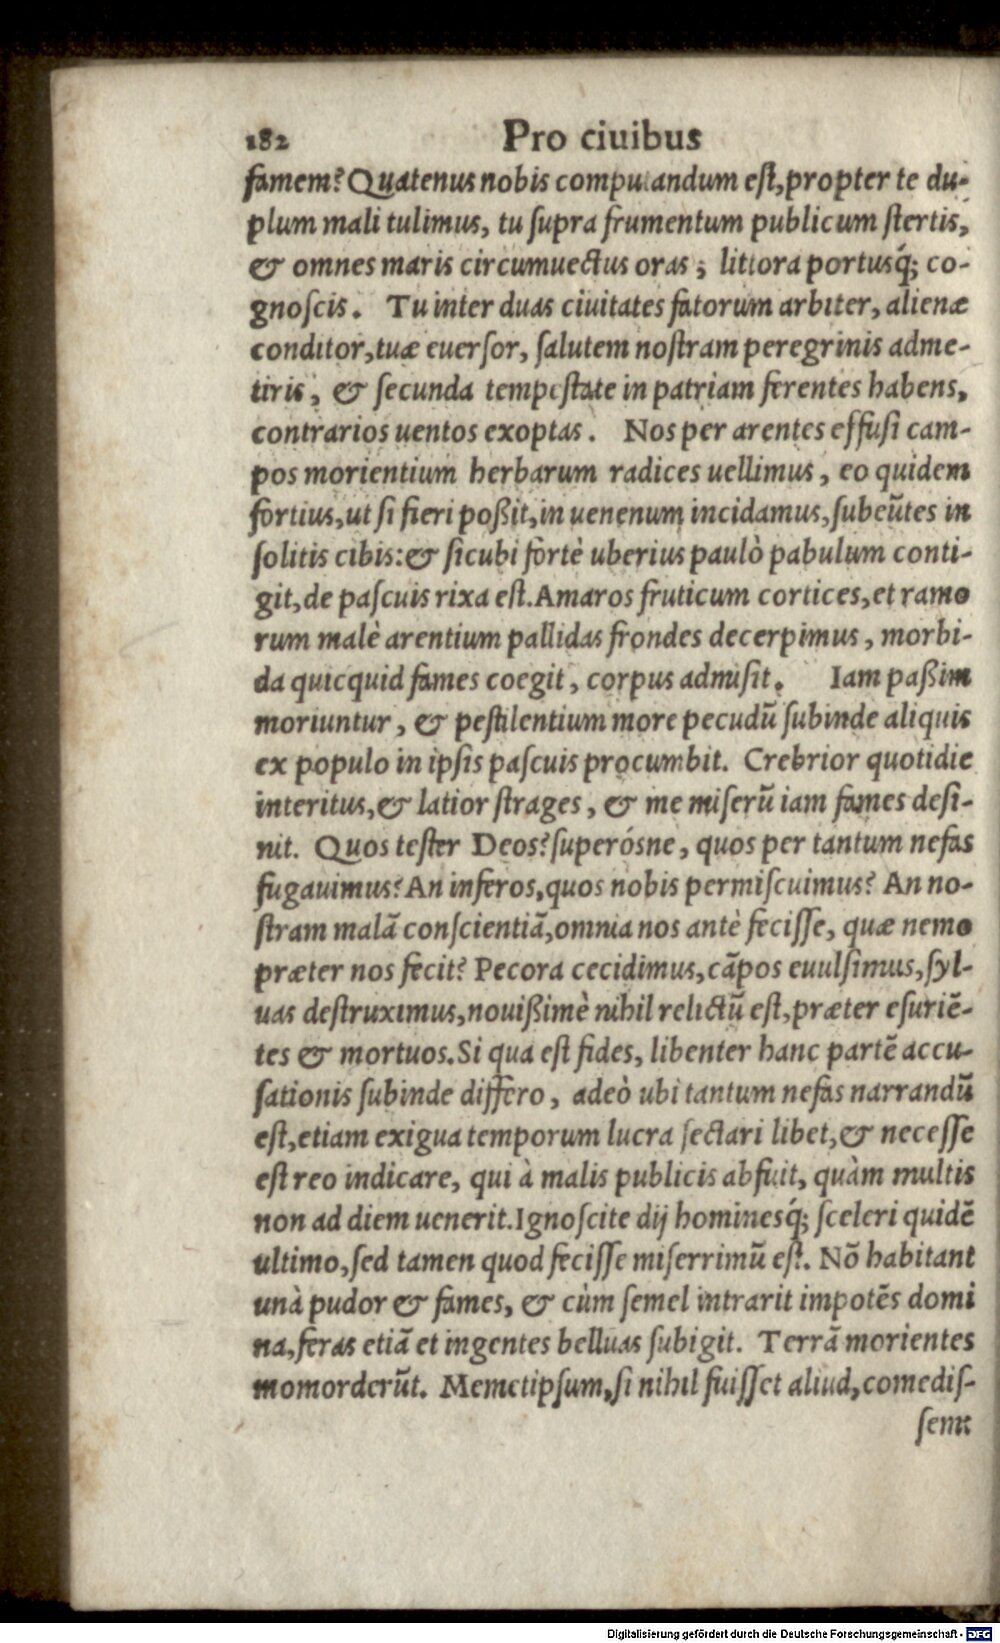 182 Pro ciuibus
famem? Quatenus nobis computandum est, propter te du-
plum mali tulimus, tu supra frumentum publicum stertis,
& omnes maris circumuectus oras; littora portusq́; co-
gnoscis. Tu inter duas ciuitates fatorum arbiter, alienæ
conditor, tuæ euersor, salutem nostram peregrinis adme-
tiris, & secunda tempestate in patriam ferentes habens,
contrarios uentos exoptas. Nos per arentes effusi cam-
pos morientium herbarum radices uellimus, eo quidem
fortius, ut si fieri poßit, in uenenum incidamus, subeũtes in
solitis cibis: & sicubi fortè uberius paulò pabulum conti-
git, de pascuis rixa est. Amaros fruticum cortices, et ramo
rum malè arentium pallidas frondes decerpimus, morbi-
da quicquid fames coegit, corpus admisit. Iam paßim
moriuntur, & pestilentium more pecudũ subinde aliquis
ex populo in ipsis pascuis procumbit. Crebrior quotidie
interitus, & latior strages, & me miserũ iam fames desi-
nit. Quos tester Deos? superósne, quos per tantum nefas
fugauimus? An inferos, quos nobis permiscuimus? An no-
stram malã conscientiã, omnia nos antè fecisse, quæ nemo
præter nos fecit? Pecora cecidimus, cãpos euulsimus, syl-
uas destruximus, nouißimè nihil relictũ est, præter esuriẽ-
tes & mortuos. Si qua est fides, libenter hanc partẽ accu-
sationis subinde differo, adeò ubi tantum nefas narrandũ
est, etiam exigua temporum lucra sectari libet, & necesse
est reo indicare, qui à malis publicis abfuit, quàm multis
non ad diem uenerit. Ignoscite dij hominesq́; sceleri quidẽ
ultimo, sed tamen quod fecisse miserrimũ est. Nõ habitant
unà pudor & fames, & cùm semel intrarit impotẽs domi
na, feras etiã et ingentes belluas subigit. Terrã morientes
momorderũt. Memetipsum, si nihil fuisset aliud, comedis-
sem:
Digitalisierung gefördert durch die Deutsche Forschungsgemeinschaft - DFG